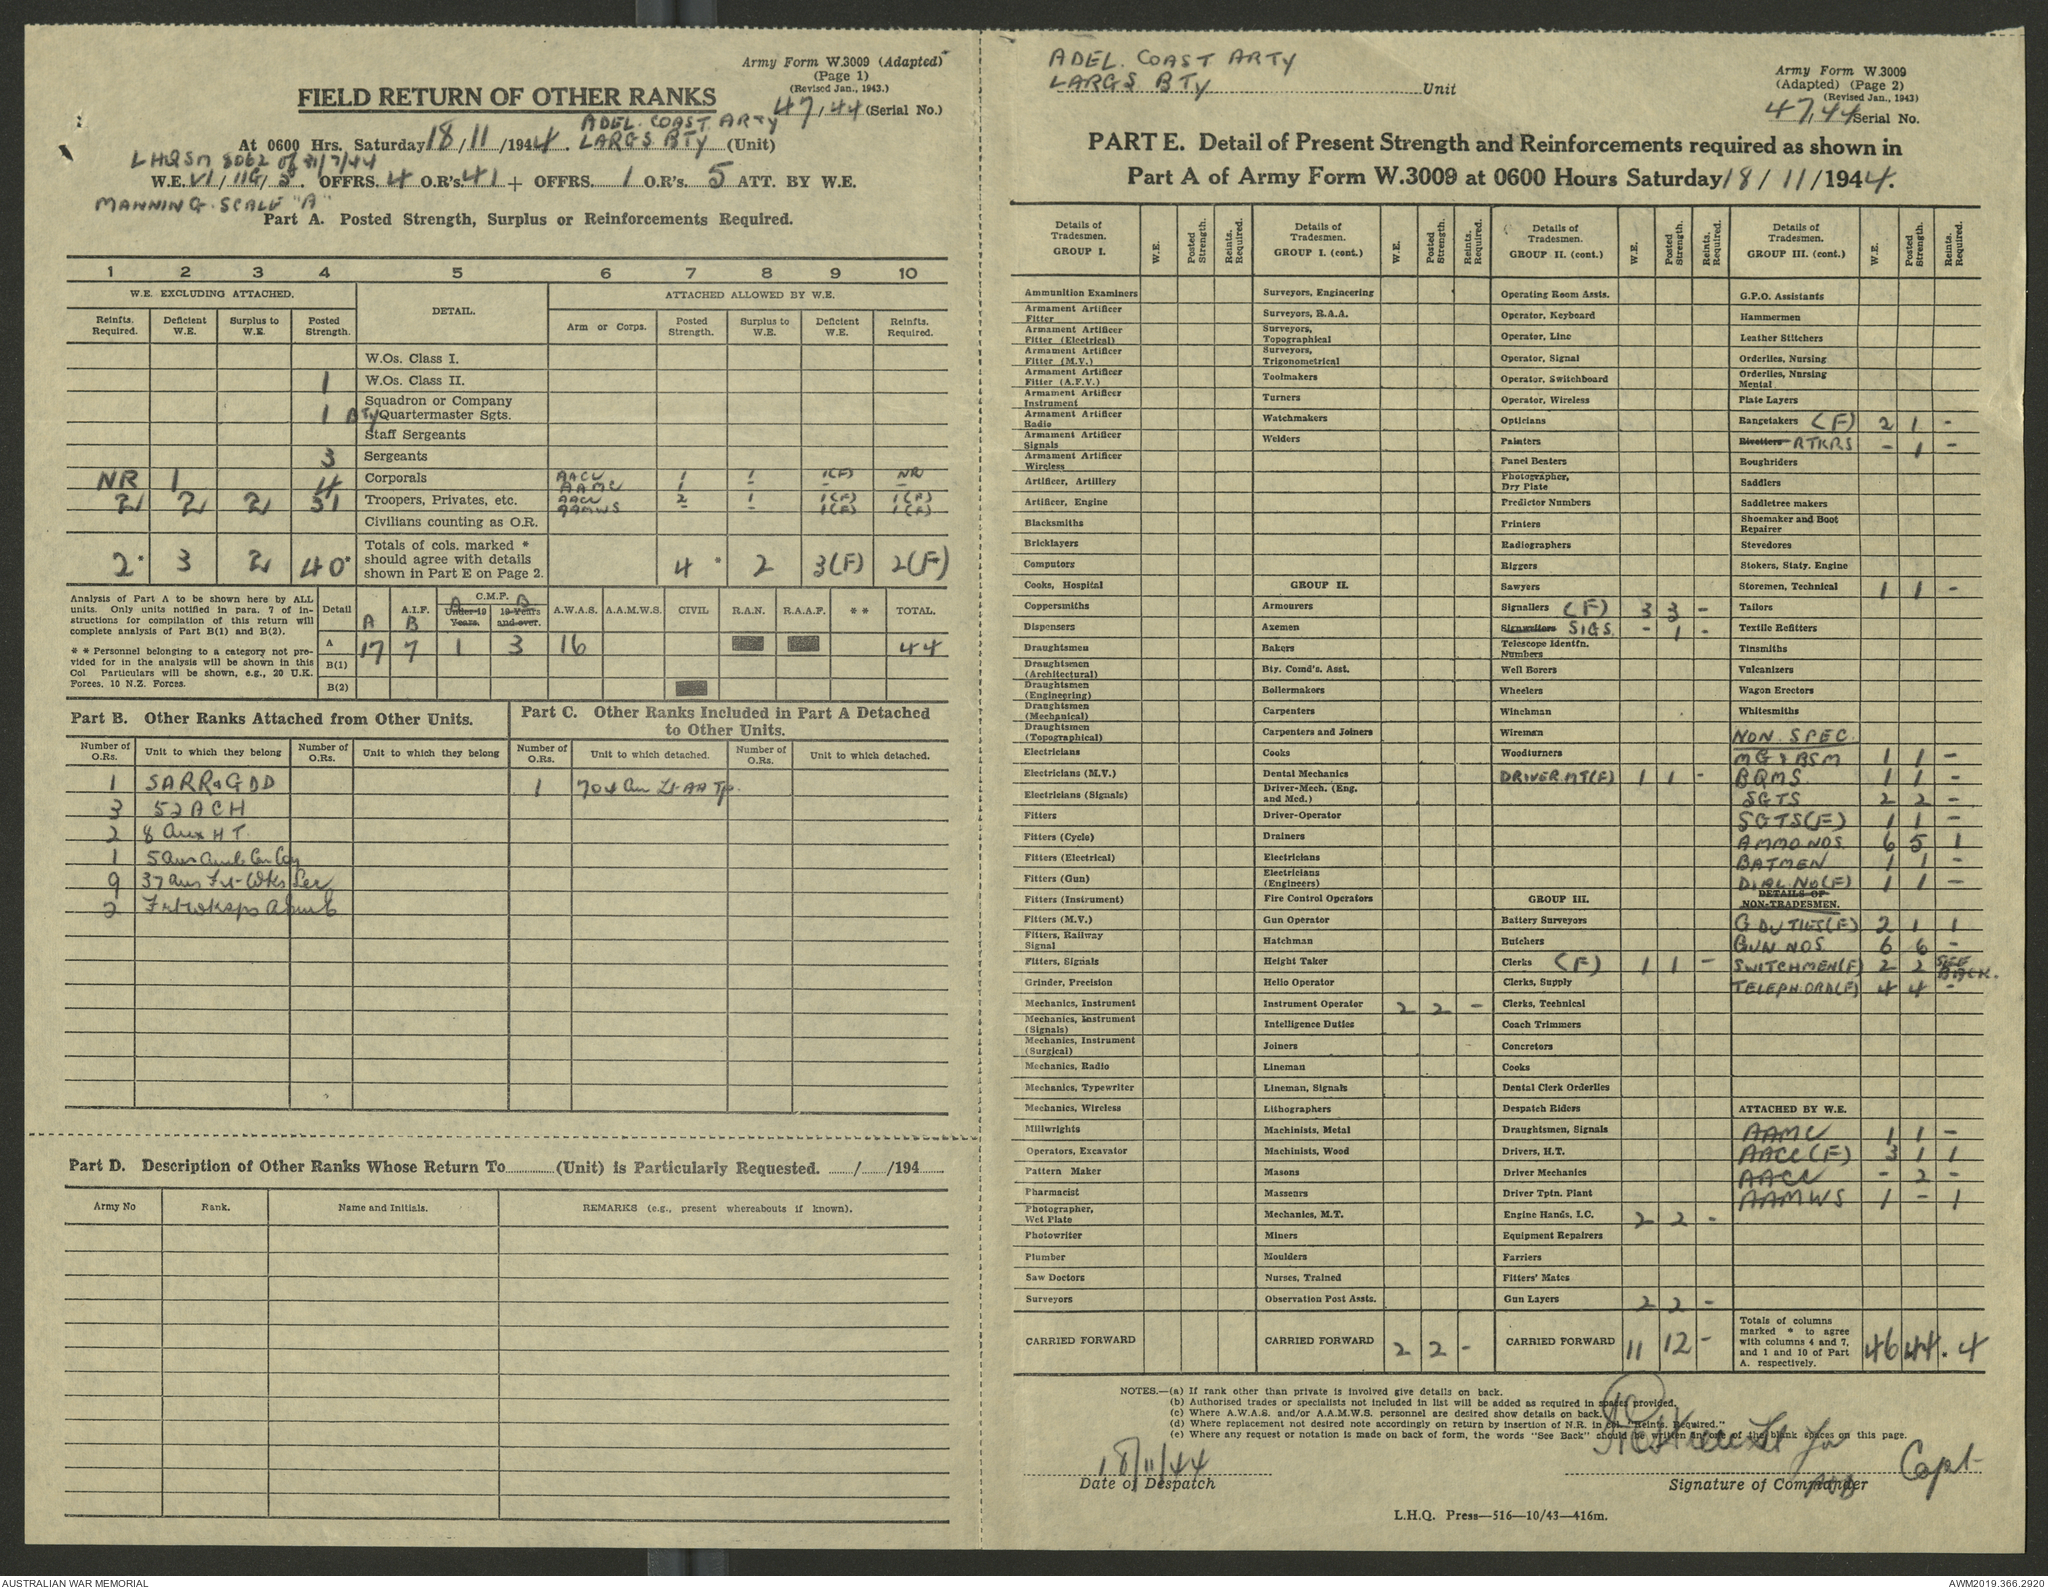 Army Form W.3009 (Adapted)
(Page 1)
(Revised Jan., 1943.)
FIELD RETURN OF OTHER RANKS
47,44 (Serial No.)
ADEL. COAST ARTY
At 0600 Hrs. Saturday 18/11/1944. LARGS BTY (Unit)
LHQ SM 8062 of 31/7/44
W.E. VI/11G/3. OFFRS. 4 O.R's. 41 + OFFRS. 1 O.R's. 5 ATT. BY W.E.
MANNING SCALE "A"
Part A. Posted Strength, Surplus or Reinforcements Required.
1 2 3 4 5 6 7 8 9 10
W.E. EXCLUDING ATTACHED. DETAIL. ATTACHED ALLOWED BY W.E.
Reinfts. Required. Deficient W.E. Surplus to W.E. Posted Strength. Arm or Corps. Posted Strength. Surplus to W.E. Deficient W.E. Reinfts. Required.
W.Os. Class I.
1 W.Os. Class II.
Squadron or Company
1 BTY Quartermaster Sgts.
Staff Sergeants
3 Sergeants
NR 1 4 Corporals AACC 1 1 1(F) NR
AAMC 1 - - -
2 2 2 31 Troopers, Privates, etc. AACC 2 1 1(F) 1(F)
AAMWS - - 1(F) 1(F)
Civilians counting as O.R.
2* 3 2 40* Totals of cols. marked * should agree with details shown in Part E on Page 2. 4 * 2 3(F) 2(F)
Analysis of Part A to be shown here by ALL units. Only units notified in para. 7 of instructions for compilation of this return will complete analysis of Part B(1) and B(2).
* * Personnel belonging to a category not provided for in the analysis will be shown in this Col Particulars will be shown, e.g., 20 U.K. Forces, 10 N.Z. Forces.
Detail A A.I.F. B C.M.F. A Under 19 Years. B 19 Years and over. A.W.A.S. A.A.M.W.S. CIVIL R.A.N. R.A.A.F. * * TOTAL.
A 17 7 1 3 16 44
B(1)
B(2)
Part B. Other Ranks Attached from Other Units.
Part C. Other Ranks Included in Part A Detached to Other Units.
Number of O.Rs. Unit to which they belong Number of O.Rs. Unit to which they belong Number of O.Rs. Unit to which detached. Number of O.Rs. Unit to which detached.
1 SARR&GDD 1 704 Lt AA Tp.
3 52 ACH
2 8 Aux H T.
1 5 Aus Amb Car Coy
9 37 Aus Frt Wks Sec
2
Part D. Description of Other Ranks Whose Return To (Unit) is Particularly Requested. / /194
Army No Rank. Name and Initials. REMARKS (e.g., present whereabouts if known).
ADEL. COAST ARTY
LARGS BTY Unit
Army Form W.3009
(Adapted) (Page 2)
(Revised Jan., 1943)
47,44 Serial No.
PART E. Detail of Present Strength and Reinforcements required as shown in
Part A of Army Form W.3009 at 0600 Hours Saturday 18/11/1944.
Details of Tradesmen. GROUP I. W.E. Posted Strength. Reints. Required.
Ammunition Examiners
Armament Artificer Fitter
Armament Artificer Fitter (Electrical)
Armament Artificer Fitter (M.V.)
Armament Artificer Fitter (A.F.V.)
Armament Artificer Instrument
Armament Artificer Radio
Armament Artificer Signals
Armament Artificer Wireless
Artificer, Artillery
Artificer, Engine
Blacksmiths
Bricklayers
Computors
Cooks, Hospital
Coppersmiths
Dispensers
Draughtsmen
Draughtsmen (Architectural)
Draughtsmen (Engineering)
Draughtsmen (Mechanical)
Draughtsmen (Topographical)
Electricians
Electricians (M.V.)
Electricians (Signals)
Fitters
Fitters (Cycle)
Fitters (Electrical)
Fitters (Gun)
Fitters (Instrument)
Fitters (M.V.)
Fitters, Railway Signal
Fitters, Signals
Grinder, Precision
Mechanics, Instrument
Mechanics, Instrument (Signals)
Mechanics, Instrument (Surgical)
Mechanics, Radio
Mechanics, Typewriter
Mechanics, Wireless
Millwrights
Operators, Excavator
Pattern Maker
Pharmacist
Photographer, Wet Plate
Photowriter
Plumber
Saw Doctors
Surveyors
CARRIED FORWARD
Details of Tradesmen. GROUP I. (cont.) W.E. Posted Strength. Reints. Required.
Surveyors, Engineering
Surveyors, R.A.A.
Surveyors, Topographical
Surveyors, Trigonometrical
Toolmakers
Turners
Watchmakers
Welders
GROUP II.
Armourers
Axemen
Bakers
Bty. Comd's. Asst.
Boilermakers
Carpenters
Carpenters and Joiners
Cooks
Dental Mechanics
Driver-Mech. (Eng. and Med.)
Driver-Operator
Drainers
Electricians
Electricians (Engineers)
Fire Control Operators
Gun Operator
Hatchman
Height Taker
Helio Operator
Instrument Operator 2 2 -
Intelligence Duties
Joiners
Lineman
Lineman, Signals
Lithographers
Machinists, Metal
Machinists, Wood
Masons
Masseurs
Mechanics, M.T.
Miners
Moulders
Nurses, Trained
Observation Post Assts.
CARRIED FORWARD 2 2 -
Details of Tradesmen. GROUP II. (cont.) W.E. Posted Strength. Reints. Required.
Operating Room Assts.
Operator, Keyboard
Operator, Line
Operator, Signal
Operator, Switchboard
Operator, Wireless
Opticians
Painters
Panel Beaters
Photographer, Dry Plate
Predictor Numbers
Printers
Radiographers
Riggers
Sawyers
Signallers (F) 3 3 -
Signwriters SIGS - 1 -
Telescope Identfn. Numbers
Well Borers
Wheelers
Winchman
Wireman
Woodturners
DRIVER MT(F) 1 1 -
GROUP III.
Battery Surveyors
Butchers
Clerks (F) 1 1 -
Clerks, Supply
Clerks, Technical
Coach Trimmers
Concretors
Cooks
Dental Clerk Orderlies
Despatch Riders
Draughtsmen, Signals
Drivers, H.T.
Driver Mechanics
Driver Tptn. Plant
Engine Hands, I.C. 2 2 -
Equipment Repairers
Farriers
Fitters' Mates
Gun Layers 2 2 -
CARRIED FORWARD 11 12 -
Details of Tradesmen. GROUP III. (cont.) W.E. Posted Strength. Reints Required.
G.P.O. Assistants
Hammermen
Leather Stitchers
Orderlies, Nursing
Orderlies, Nursing Mental
Plate Layers
Rangetakers (F) 2 1 -
Rivetters RTKRS - 1 -
Roughriders
Saddlers
Saddletree makers
Shoemaker and Boot Repairer
Stevedores
Stokers, Staty. Engine
Storemen, Technical 1 1 -
Tailors
Textile Refitters
Tinsmiths
Vulcanizers
Wagon Erectors
Whitesmiths
NON. SPEC.
MG & BSM 1 1 -
BQMS 1 1 -
SGTS 2 2 -
SGTS(F) 1 1 -
AMMO NOS 6 5 1
BATMEN 1 1 -
DIAL NO(F) 1 1 -
DETAILS OF NON-TRADESMEN.
G DUTIES(F) 2 1 1
GUN NOS 6 6 -
SWITCHMEN(F) 2 2 SEE BACK.
TELEPH ORD(F) 4 4 -
ATTACHED BY W.E.
AAMC 1 1 -
AACC(F) 3 1 1
AACC - 2 -
AAMWS 1 - 1
Totals of columns marked * to agree with columns 4 and 7, and 1 and 10 of Part A. respectively. 46 44 * 4
NOTES.—(a) If rank other than private is involved give details on back.
(b) Authorised trades or specialists not included in list will be added as required in spaces provided.
(c) Where A.W.A.S. and/or A.A.M.W.S. personnel are desired show details on back.
(d) Where replacement not desired note accordingly on return by insertion of N.R. in col. "Reints. Required."
(e) Where any request or notation is made on back of form, the words "See Back" should be written in one of the blank spaces on this page.
18/11/44
Date of Despatch
Lt for Capt
Signature of Commander
L.H.Q. Press—516—10/43—416m.
AUSTRALIAN WAR MEMORIAL
AWM2019.366.2920